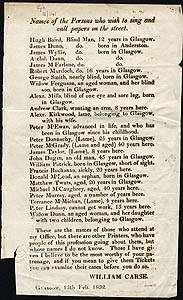 Names of the Persons who wish to sing and
call papers on the street.
Hugh Baird, Blind Man, 12 years in Glasgow.
James Dunn, do. born in Anderston.
James Wyllie, do. born in Glasgow.
Archd. Dunn, do. do.
James M'Farlane, do. do.
Robert Murdoch, do. 16 years in Glasgow.
George Smith, nearly blind, born in Glasgow.
Widow Ferguson, an aged woman, and her blind
son, born in Glasgow.
Alex. Mills, blind of one eye and sore leg, born
in Glasgow.
Andrew Clark, wanting an arm, 8 years here.
Alex. Kirkwood, lame, belonging to Glasgow,
with his wife.
Peter M'Ewan, advanced in life, and who has
been in Glasgow since his childhood.
Peter Dannachy, (Lame), 25 years in Glasgow.
Peter M'Grady, (Lame and aged) 40 years here.
James Taylor, (Lame), 8 years here.
John Dugan, an old man, 45 years in Glasgow.
William Patrick, born in Glasgow, short of sight.
Francis Buchanan, sickly, 20 years here.
Donald M'Leod, an aged man, born in Glasgow.
Matthew Yeats, aged, 20 years in Glasgow.
Michael M'Caughrey, aged, 40 years here.
Peter Murray, aged, a number of years here.
Terrance M'Michan, (Lame), 4 years here.
Peter Lindsay, cannot get work, 15 years here.
Widow Dunn, an aged woman, and her daughter
with two children, belonging to Glasgow.
These are the names of those who attend at
my Office, but there are other Printers, who have
people of this profession going about them, but
whose names I do not know. Those I have given
I believe to be the most worthy of your patronage,
and if you mean to give them Tickets
you can examine their cases before you do so.
WILLIAM CARSE.
Glasgow, 15th Feb. 1832.